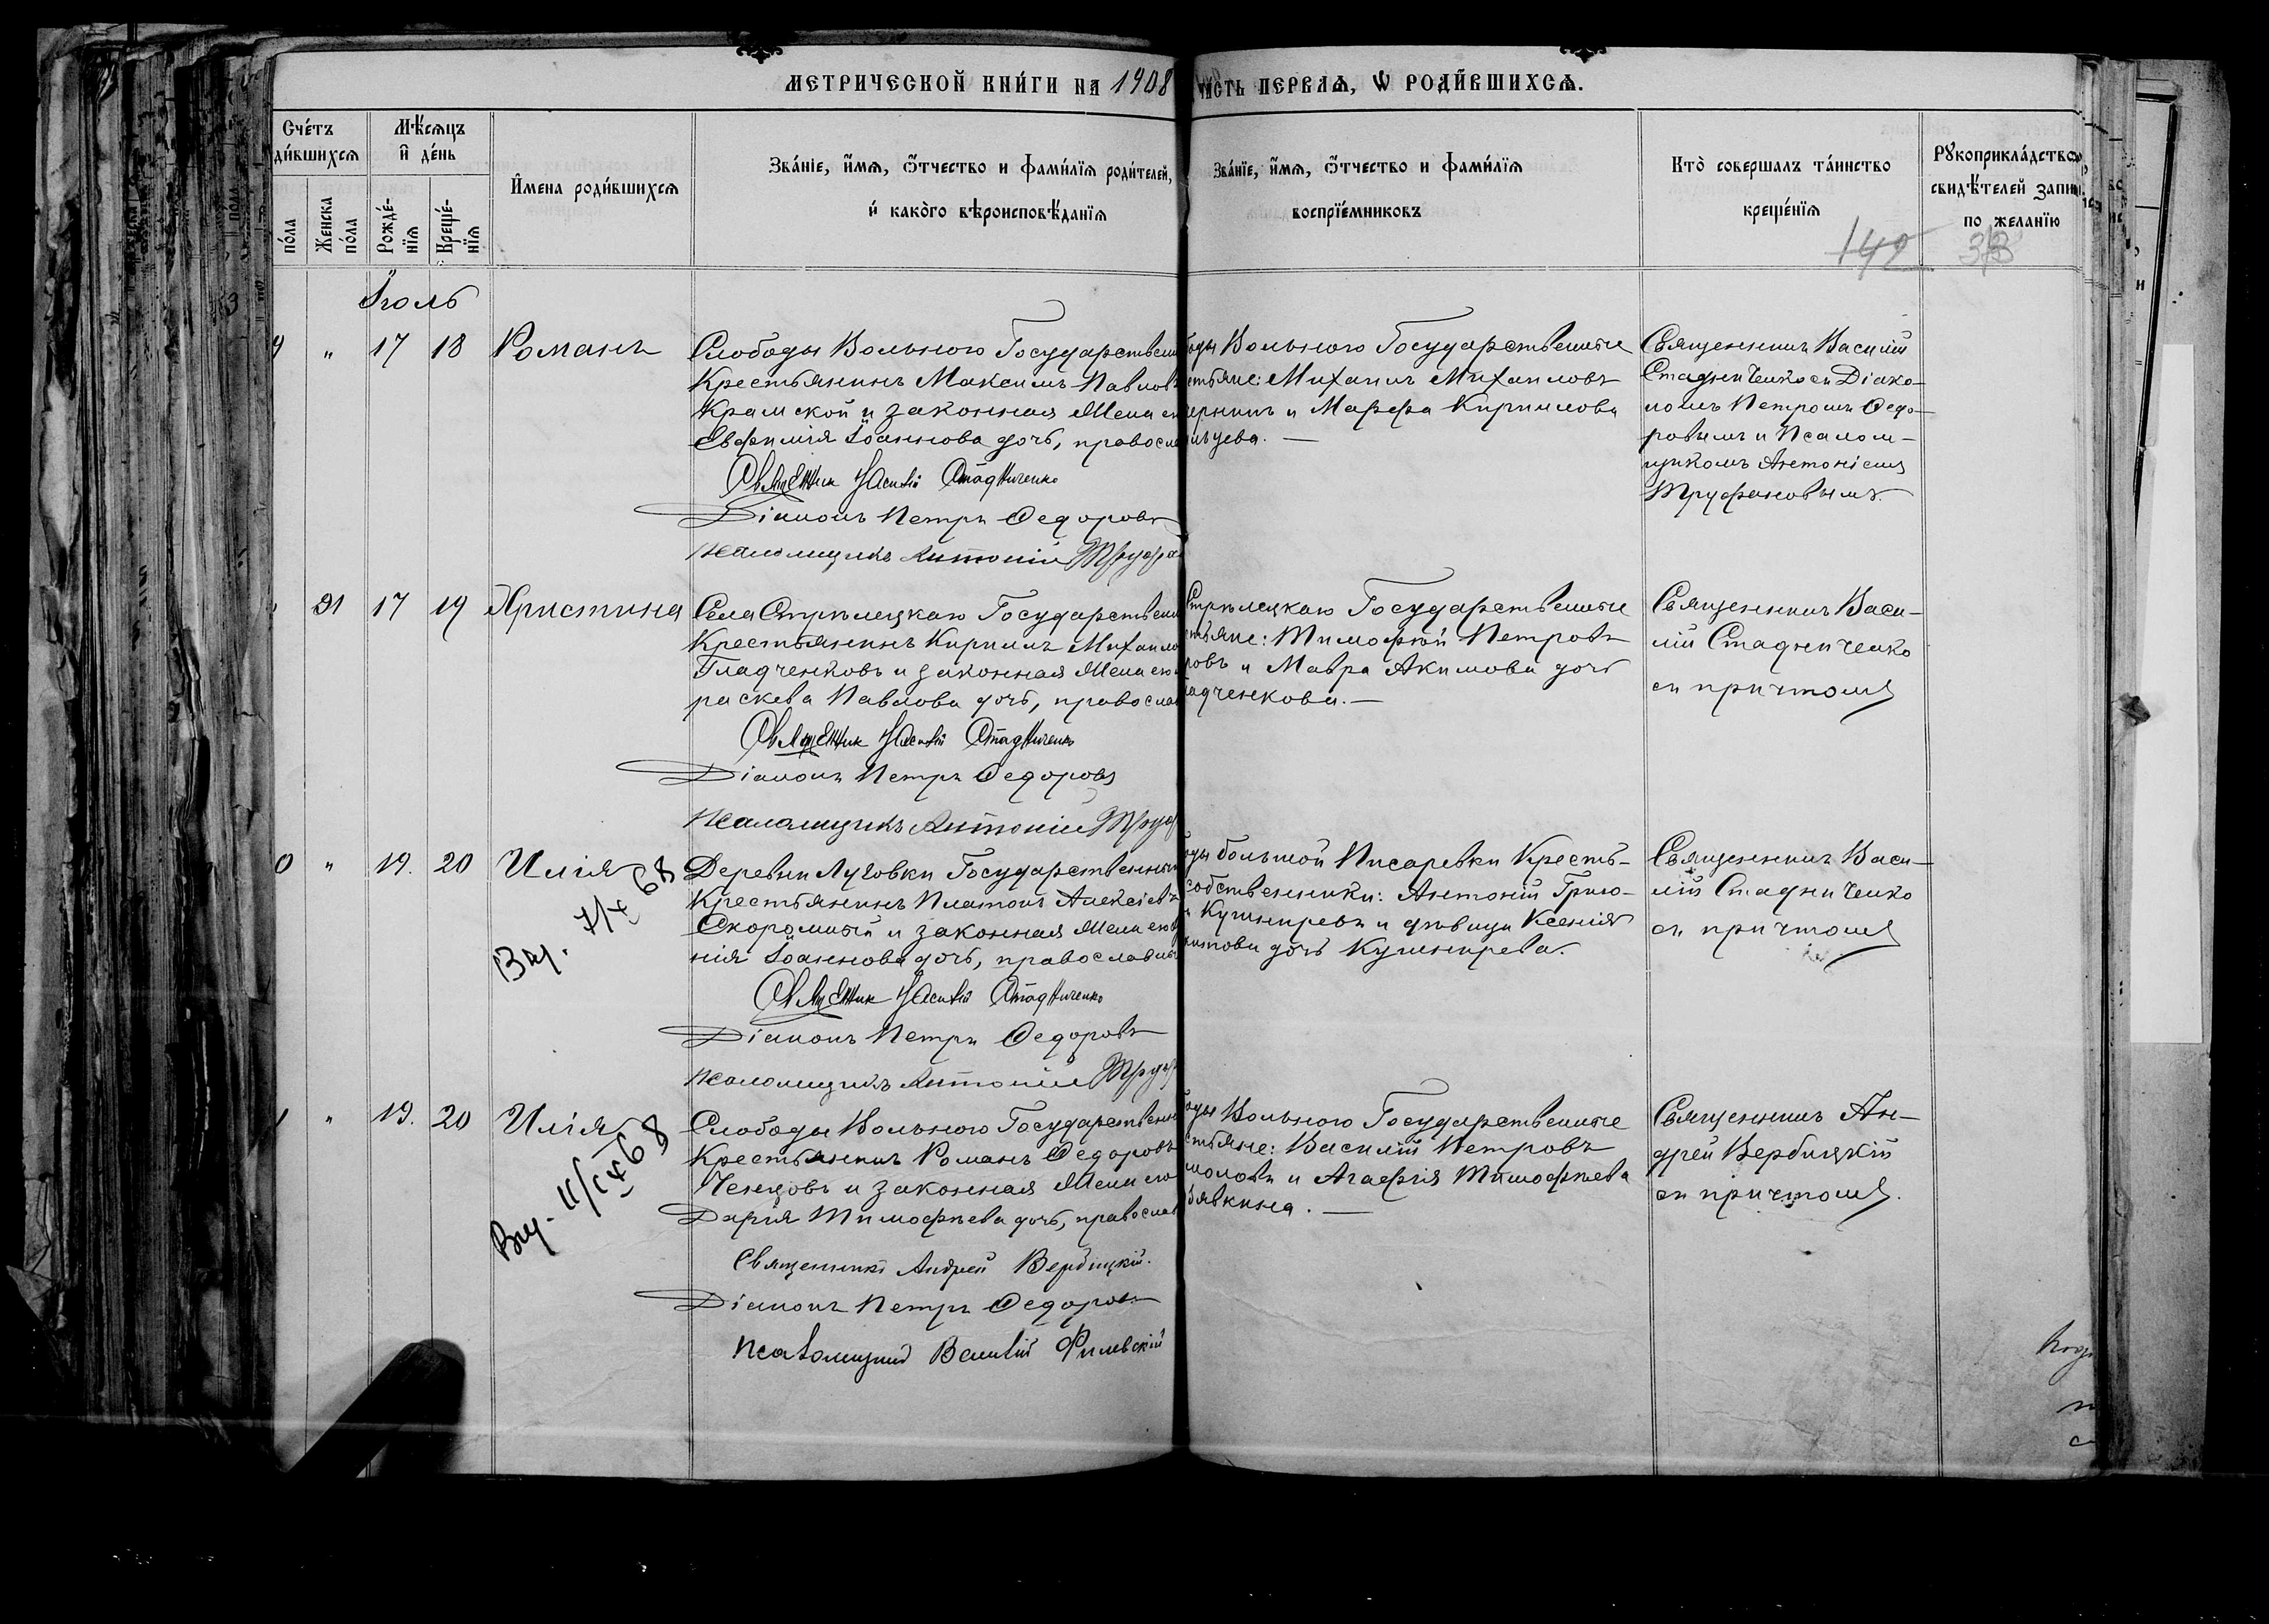 МЕТРИЧЕСКОЙ КНИ́ГИ НА 1908
ЧАСТЬ ПЕРВАѦ, Ѡ РОДИ́ВШИХСѦ.
Сче́тъ
ди́вшихсѧ
по́ла
Женска
по́ла
Мѣ́сѧцъ
и҆ де́нь
Рожде́-
нїѧ
Креще́-
нїѧ
И҆мена роди́вшихсѧ
Зва́нїе, и҆́мѧ, ѻ҆́тчество и фами́лїѧ роди́телей,
и҆ како́гѡ вѣроисповѣ́данїѧ
Зва́нїе, и҆́мѧ, ѻ҆́тчество и фами́лїѧ
воспрїе́мниковъ
Кто̀ соверша́лъ та́инство
креще́нїѧ
Рꙋкоприкла́дство
свидѣ́телей запи
по жела́нїю
149
33
Іюль
9 " 17 18 Романъ
Слободы Вольного Государствен
Крестьянинъ Максимъ Павловъ
Крамской и законная Жена ег
Евфимія Іоаннова дочь, правосла
Священник Василій Стадниченко
Діаконъ Петръ Федоровъ
Псаломщикъ Антоній Труфа
оды Вольного Государственные
стьяне: Михаилъ Михаиловъ
и Марфа Кирилова
ьцева. —
Священникъ Василій
Стадниченко съ Діако-
номъ Петромъ Федо-
ровымъ и Псалом-
щикомъ Антоніемъ
Труфановымъ.
21 17 19 Христина
Села Стрѣлецкаго Государствен
Крестьянинъ Кирилъ Михаило
Гладченковъ и законная Жена его
раскева Павлова дочь, православ
Священник Василій Стадниченко
Діаконъ Петръ Федоровъ
Псаломщикъ Антоній Труф
Стрѣлецкаго Государственные
стьяне: Тимофѣй Петровъ
ровъ и Мавра Акимова дочь
адченкова. —
Священникъ Васи-
лій Стадниченко
съ причтомъ
0 " 19. 20 Илія
Вы. 7/X 68
Деревни Луговки Государственный
Крестьянинъ Платонъ Алексіевъ
Скоромный и законная Жена его
нія Іоаннова дочь, православны
Священник Василій Стадниченко
Діаконъ Петръ Федоровъ
Псаломщикъ Антоній Труф
оды большой Писаревки Кресть-
собственники: Антоній Григо-
Кушнеревъ и дѣвица Ксенія
антова дочь Кушнерева.
Священникъ Васи-
лій Стадниченко
съ причтомъ
1 " 19. 20 Илія
Вы. 11/IX 68
Слободы Вольного Государствен
Крестьянинъ Романъ Федоровъ
Ченцовъ и законная Жена его
Дарія Тимофѣева дочь, православ
Священникъ Андрей Вербицкій.
Діаконъ Петръ Федоровъ
Псаломщикъ Василій Филевскій
оды Вольного Государственные
стьяне: Василій Петровъ
и Агафія Тимофѣева
бявкина. —
Священникъ Ан-
дрей Вербицкій
съ причтомъ.